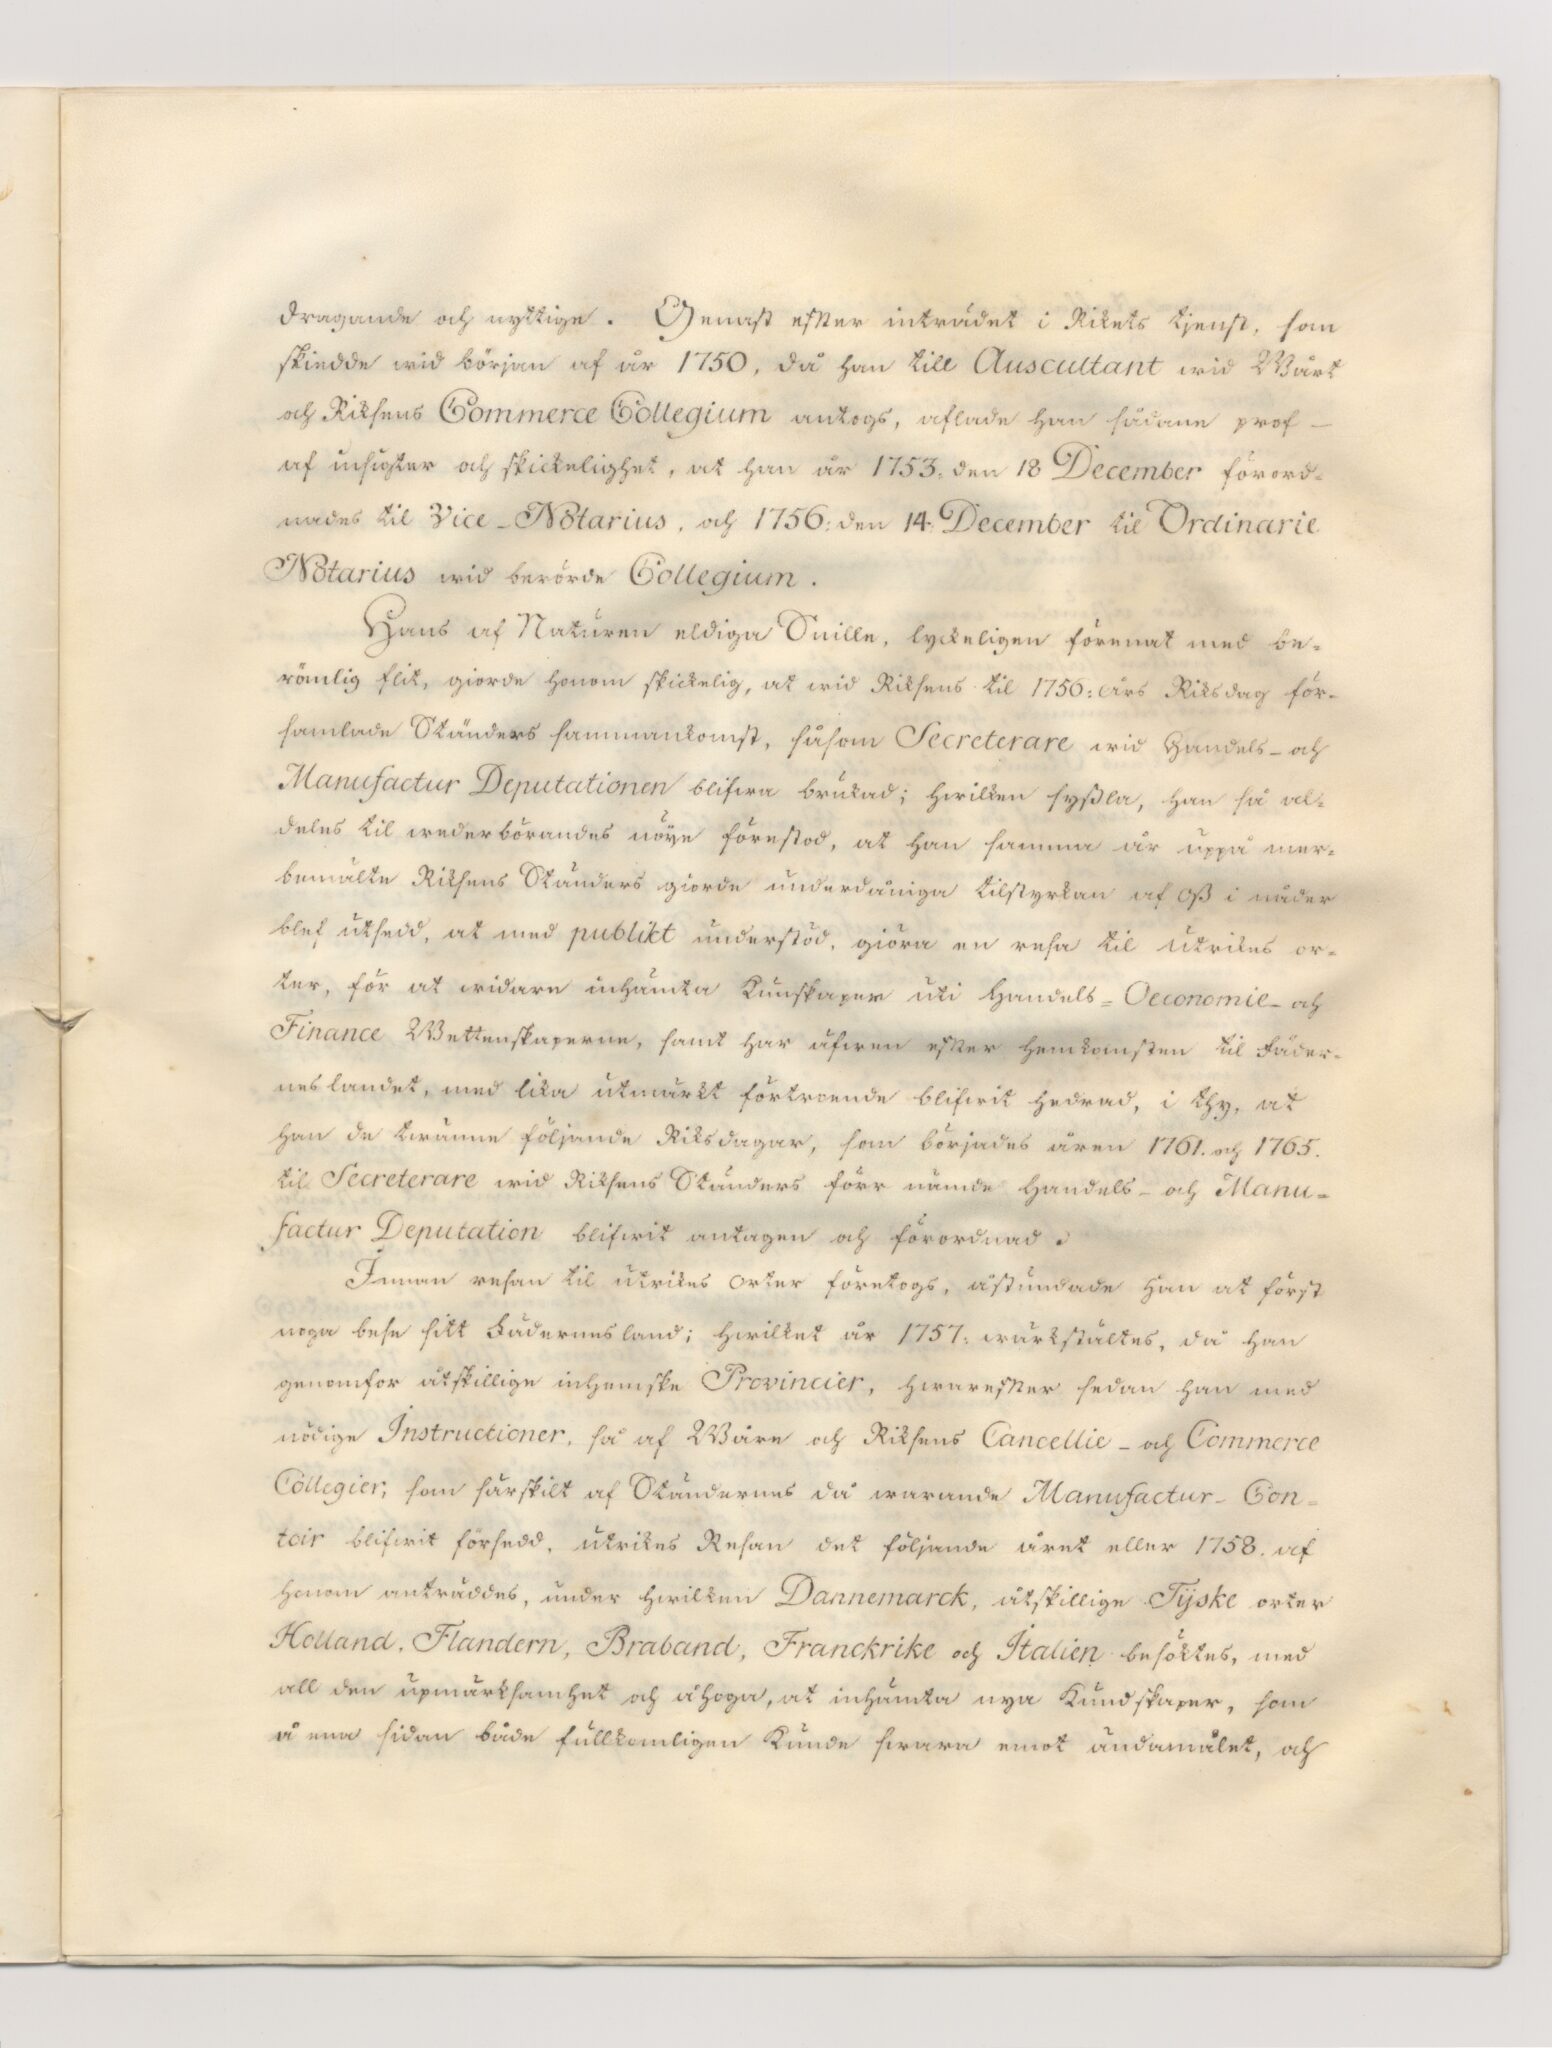 dragande och nyttige. Genast efter inträdet i Rikets tjenst, som
skiedde wid början af år 1750, då han till Auscultant wid Wårt
och Riksens Commerce Collegium antogs, aflade han sådane prof
af insigter och skickelighet, at han år 1753. den 18 December förord-
nades til Vice-Notarius, och 1756: den 14. December til Ordinarie
Notarius wid berörde Collegium.
Hans af Naturen eldiga Snille, lyckeligen förenat med be-
römlig flit, giorde honom skickelig, at wid Riksens til 1756: års Riksdag för-
samlade Ständers sammankomst, såsom Secreterare wid Handels- och
Manufactur Deputationen blifwa brukad; hwilken syßla, han så al-
deles til wederbörandes nöye förestod, at han samma år uppå mer-
bemälte Riksens Ständers giorde underdåniga tilstyrkan af Oß i nåder
blef utsedd, at med publikt understöd, giöra en resa til utrikes or-
ter, för at widare inhämta Kunskaper uti Handels- Oeconomie- och
Finance Wettenskaperne, samt har äfwen efter hemkomsten til Fäder-
neslandet, med lika utmärkt förtroende blifwit hedrad, i thy, at
han de twänne följande Riksdagar, som börjades åren 1761. och 1765.
til Secreterare wid Riksens Ständers förr nämde Handels- och Manu-
factur Deputation blifwit antagen och förordnad.
Innan resan til utrikes orter företogs, åstundade han at först
noga bese sitt Fädernesland; hwilket år 1757: wärkstältes, då han
genomfor åtskillige inhemske Provincier, hwarefter sedan han med
nödige Instructioner, så af Wåre och Riksens Cancellie- och Commerce
Collegier, som särskilt af Ständernes då warande Manufactur- Con-
toir blifwit försedd, utrikes Resan det följande året eller 1758. af
honom anträddes, under hwilken Dannemarck, åtskillige Tÿske orter
Holland, Flandern, Braband, Franckrike och Italien besöktes, med
all den upmärksamhet och åhoga, at inhämta nya Kundskaper, som
å ena sidan både fullkomligen Kunde swara emot ändamålet, och